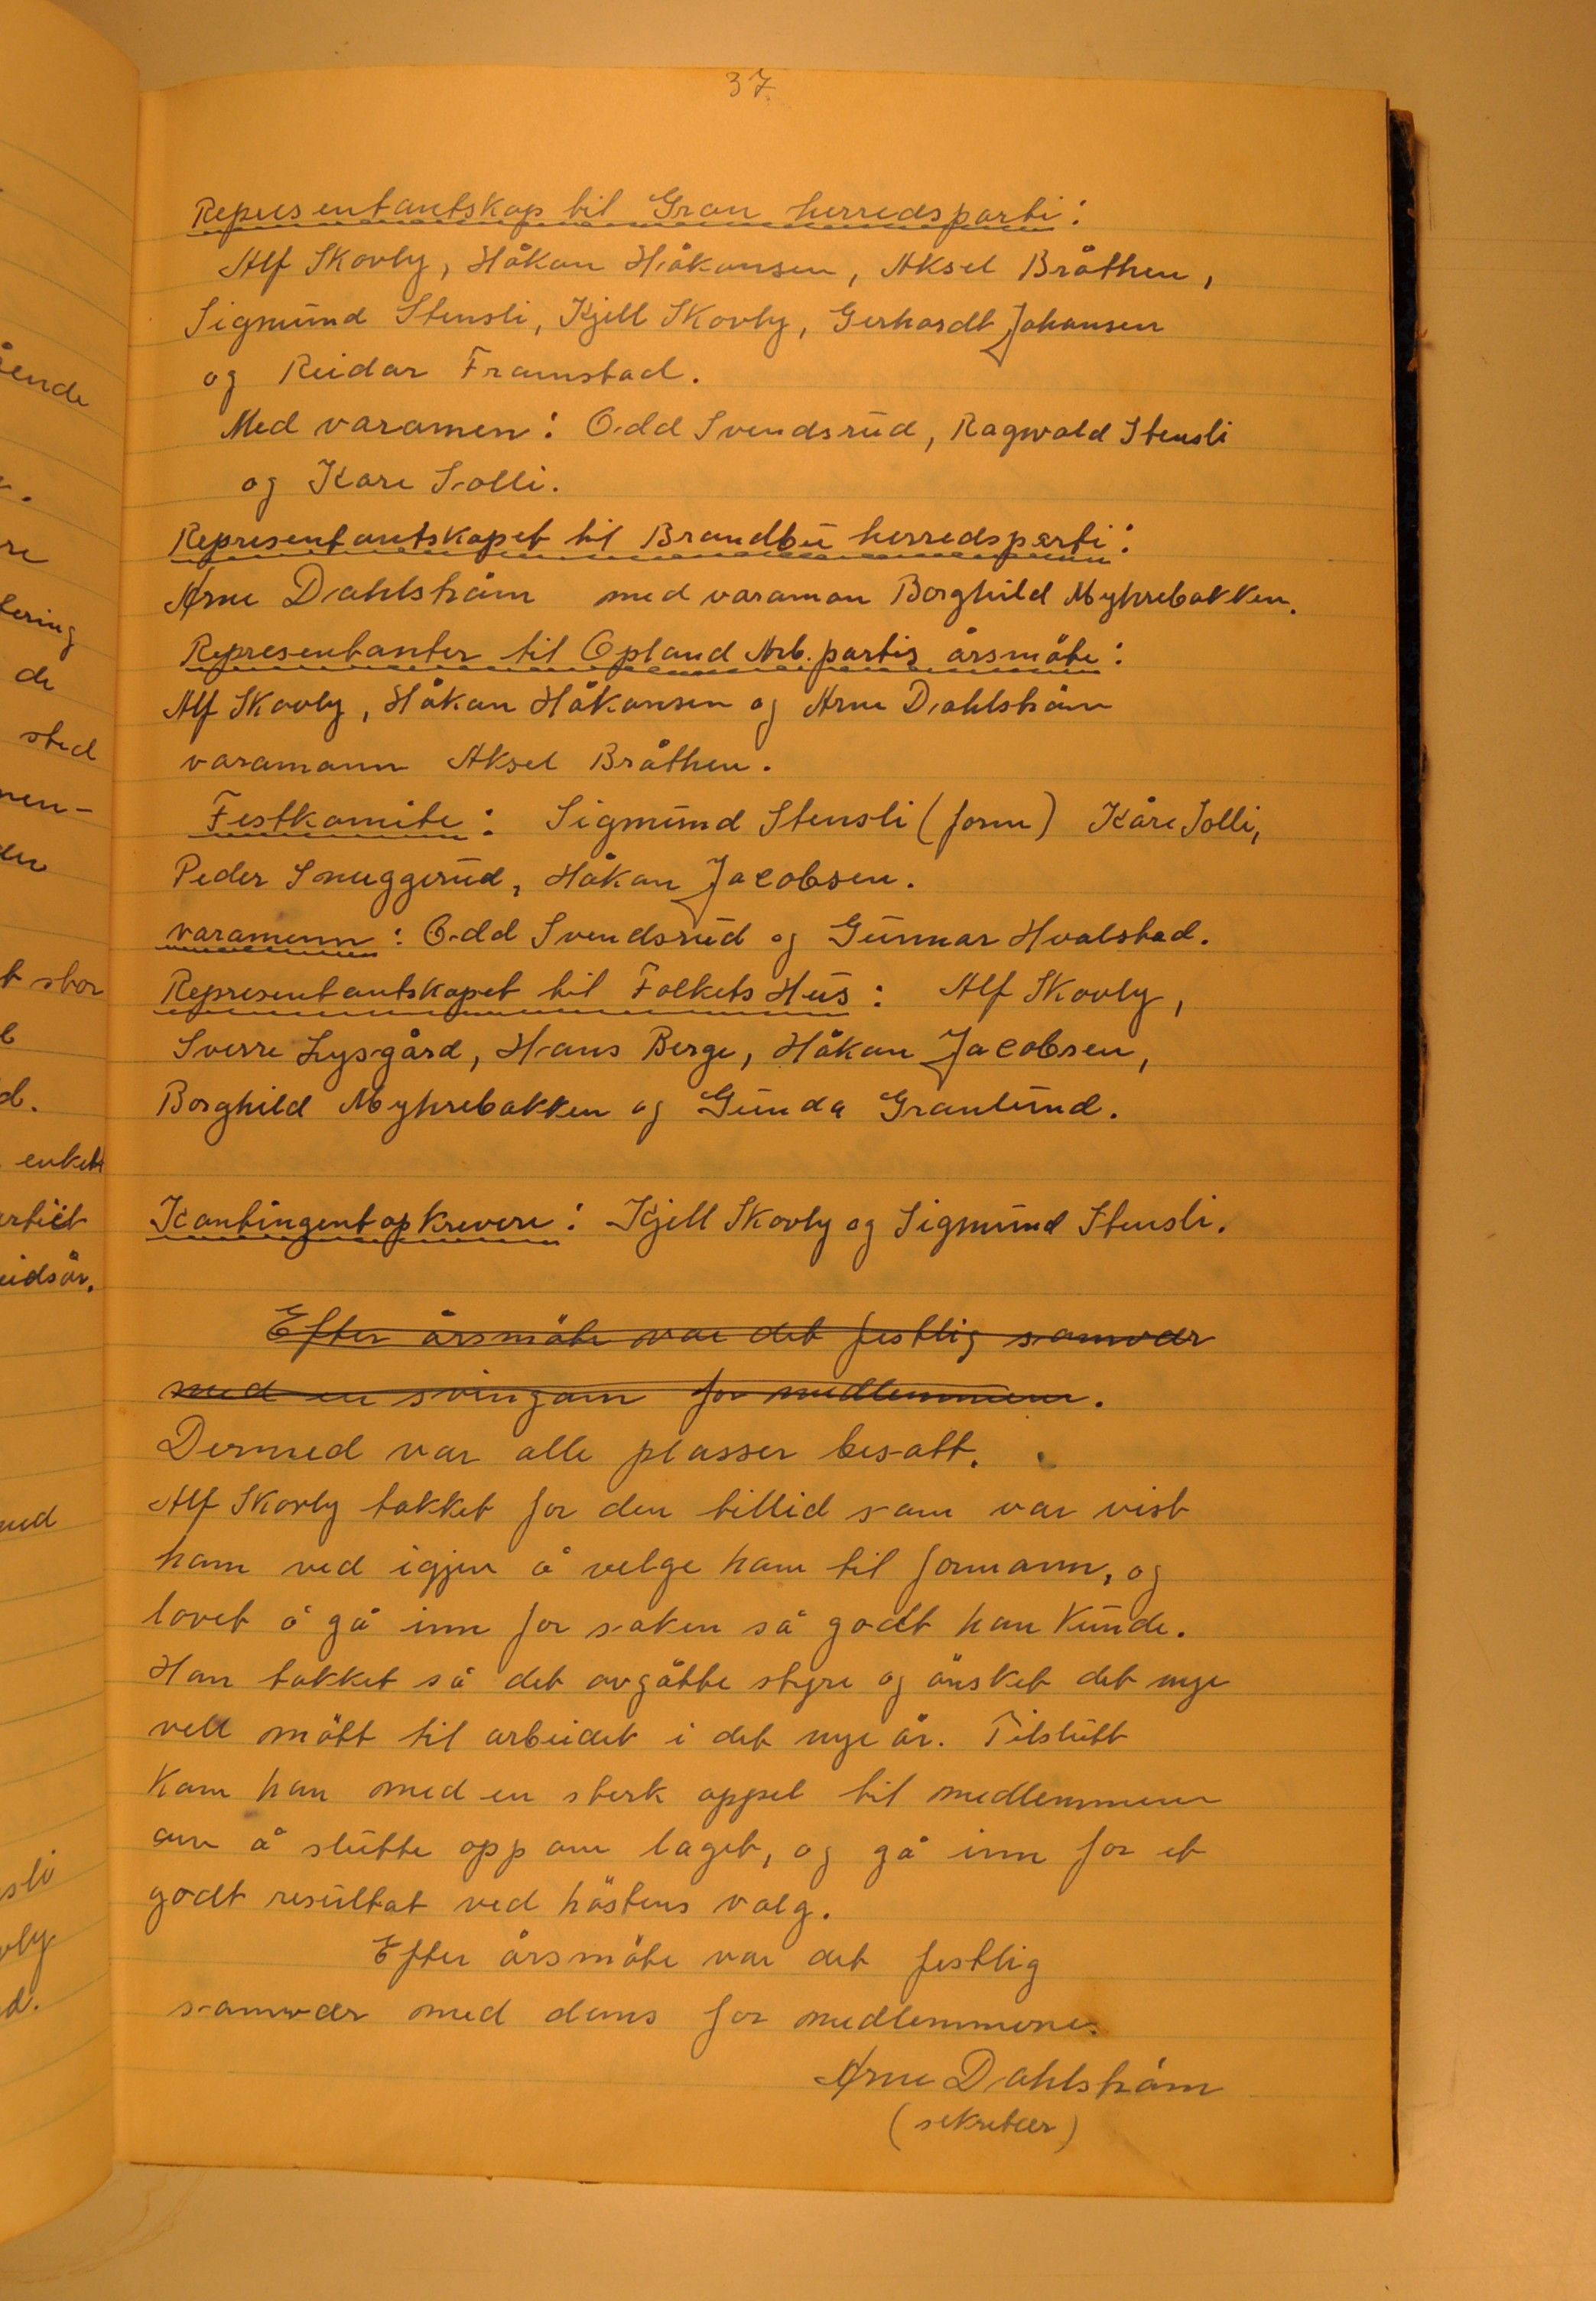 37.
Representantskap til Gran herredsparti:
Alf Skovly, Håkon Håkonsen, Aksel Bråthen,
Sigmund Stensli, Kjell Skovly, Gerhardt Johansen
og Reidar Framstad.
Med varamen: Odd Svendsrud, Ragnvald Stensli
og Kåre Solli.
Representantskapet til Brandbu herredsparti:
Arne Dahlstrøm med varaman Borghild Myhrebakken.
Representanter til Opland Arb. partis årsmöte:
Alf Skovly, Håkon Håkonsen og Arne Dahlström
varamann Aksel Bråthen.
Festkomite: Sigmund Stensli (form) Kåre Solli,
Peder Smuggerud, Håkon Jacobsen.
varamenn: Odd Svendsrud og Gunnar Hvalstad.
Representantskapet til Folkets Hus: Alf Skovly,
Sverre Lysgård, Hans Berge, Håkon Jacobsen,
Borghild Myhrebakken og Gunda Granlund.
Kontingentopkrevere: Kjell Skovly og Sigmund Stensli.
Efter årsmöte var det festlig samvær
med en svingom for medlemmene.
Dermed var alle plasser besatt.
Alf Skovly takket for den tillid som var vist
ham ved igjen å velge ham til formann, og
lovet å gå inn for saken så godt han kunde.
Han takket så det avgåtte styre og önsket det nye
vell mött til arbeidet i det nye år. Tilslutt
kom han med en sterk appel til medlemmene
om å slutte opp om laget, og gå inn for et
godt resultat ved höstens valg.
Efter årsmöte var det festlig
samvær med dans for medlemmene.
Arne Dahlström
(sekretær)
ående
re
tering
de
sted
nen-
t stor
d.
enkelt
artiet
eidsår.
med
sli
vly
d.